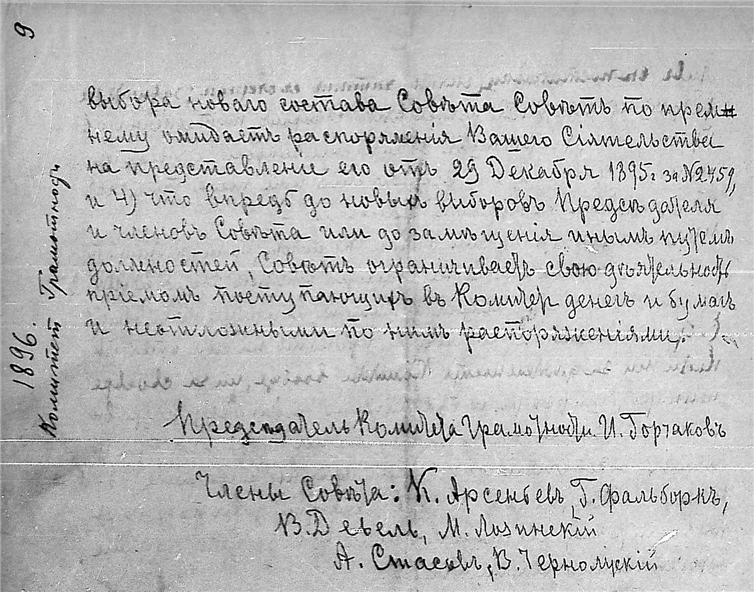 9
выбора новаго состава Совѣта Совѣтъ по преж-
нему ожидаетъ распоряженія Вашего Сіятельства
на представленіе его отъ 29 Декабря 1895 г. за № 2459,
и 4) что впредь до новыхъ выборовъ Предсѣдателя
и членовъ Совѣта или до замѣщенія инымъ путемъ
должностей, Совѣтъ ограничиваетъ свою дѣятельность
пріемомъ поступающихъ въ Комитетъ денегъ и бумагъ
и неотложными по нимъ распоряженіями.
Предсѣдатель Комитета Грамотности И. Горчаковъ
Члены Совѣта: К. Арсеньевъ, Г. Фальборкъ,
В. Девель, М. Лозинскій
А. Стасовъ, В. Чернолускій
1896.
Комитет Грамотности